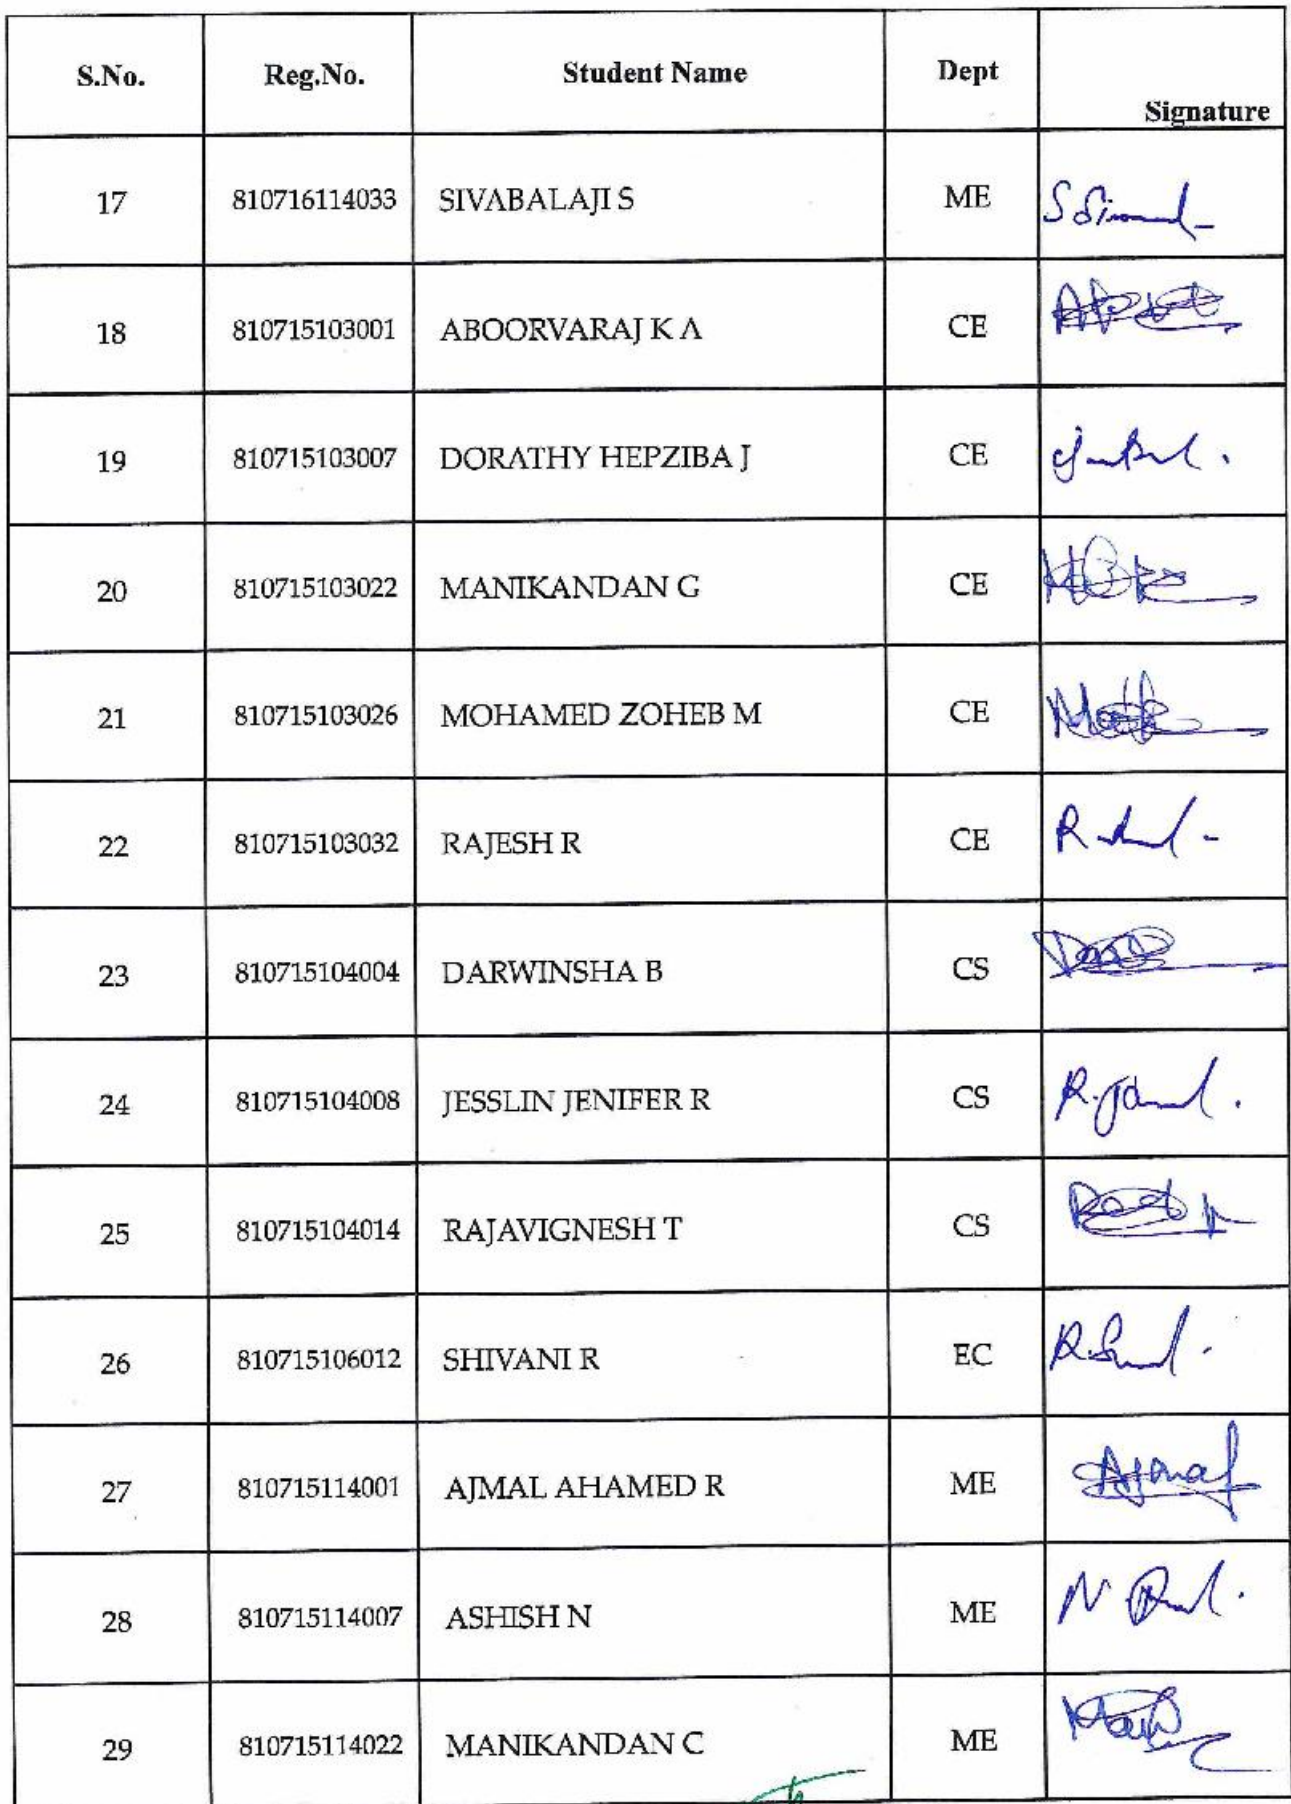 S.No. Reg.No. Student Name Dept Signature
17 810716114033 SIVABALAJI S ME
18 810715103001 ABOORVARAJ K A CE
19 810715103007 DORATHY HEPZIBA J CE
20 810715103022 MANIKANDAN G CE
21 810715103026 MOHAMED ZOHEB M CE
22 810715103032 RAJESH R CE
23 810715104004 DARWINSHA B CS
24 810715104008 JESSLIN JENIFER R CS
25 810715104014 RAJAVIGNESH T CS
26 810715106012 SHIVANI R EC
27 810715114001 AJMAL AHAMED R ME Ajmal
28 810715114007 ASHISH N ME
29 810715114022 MANIKANDAN C ME